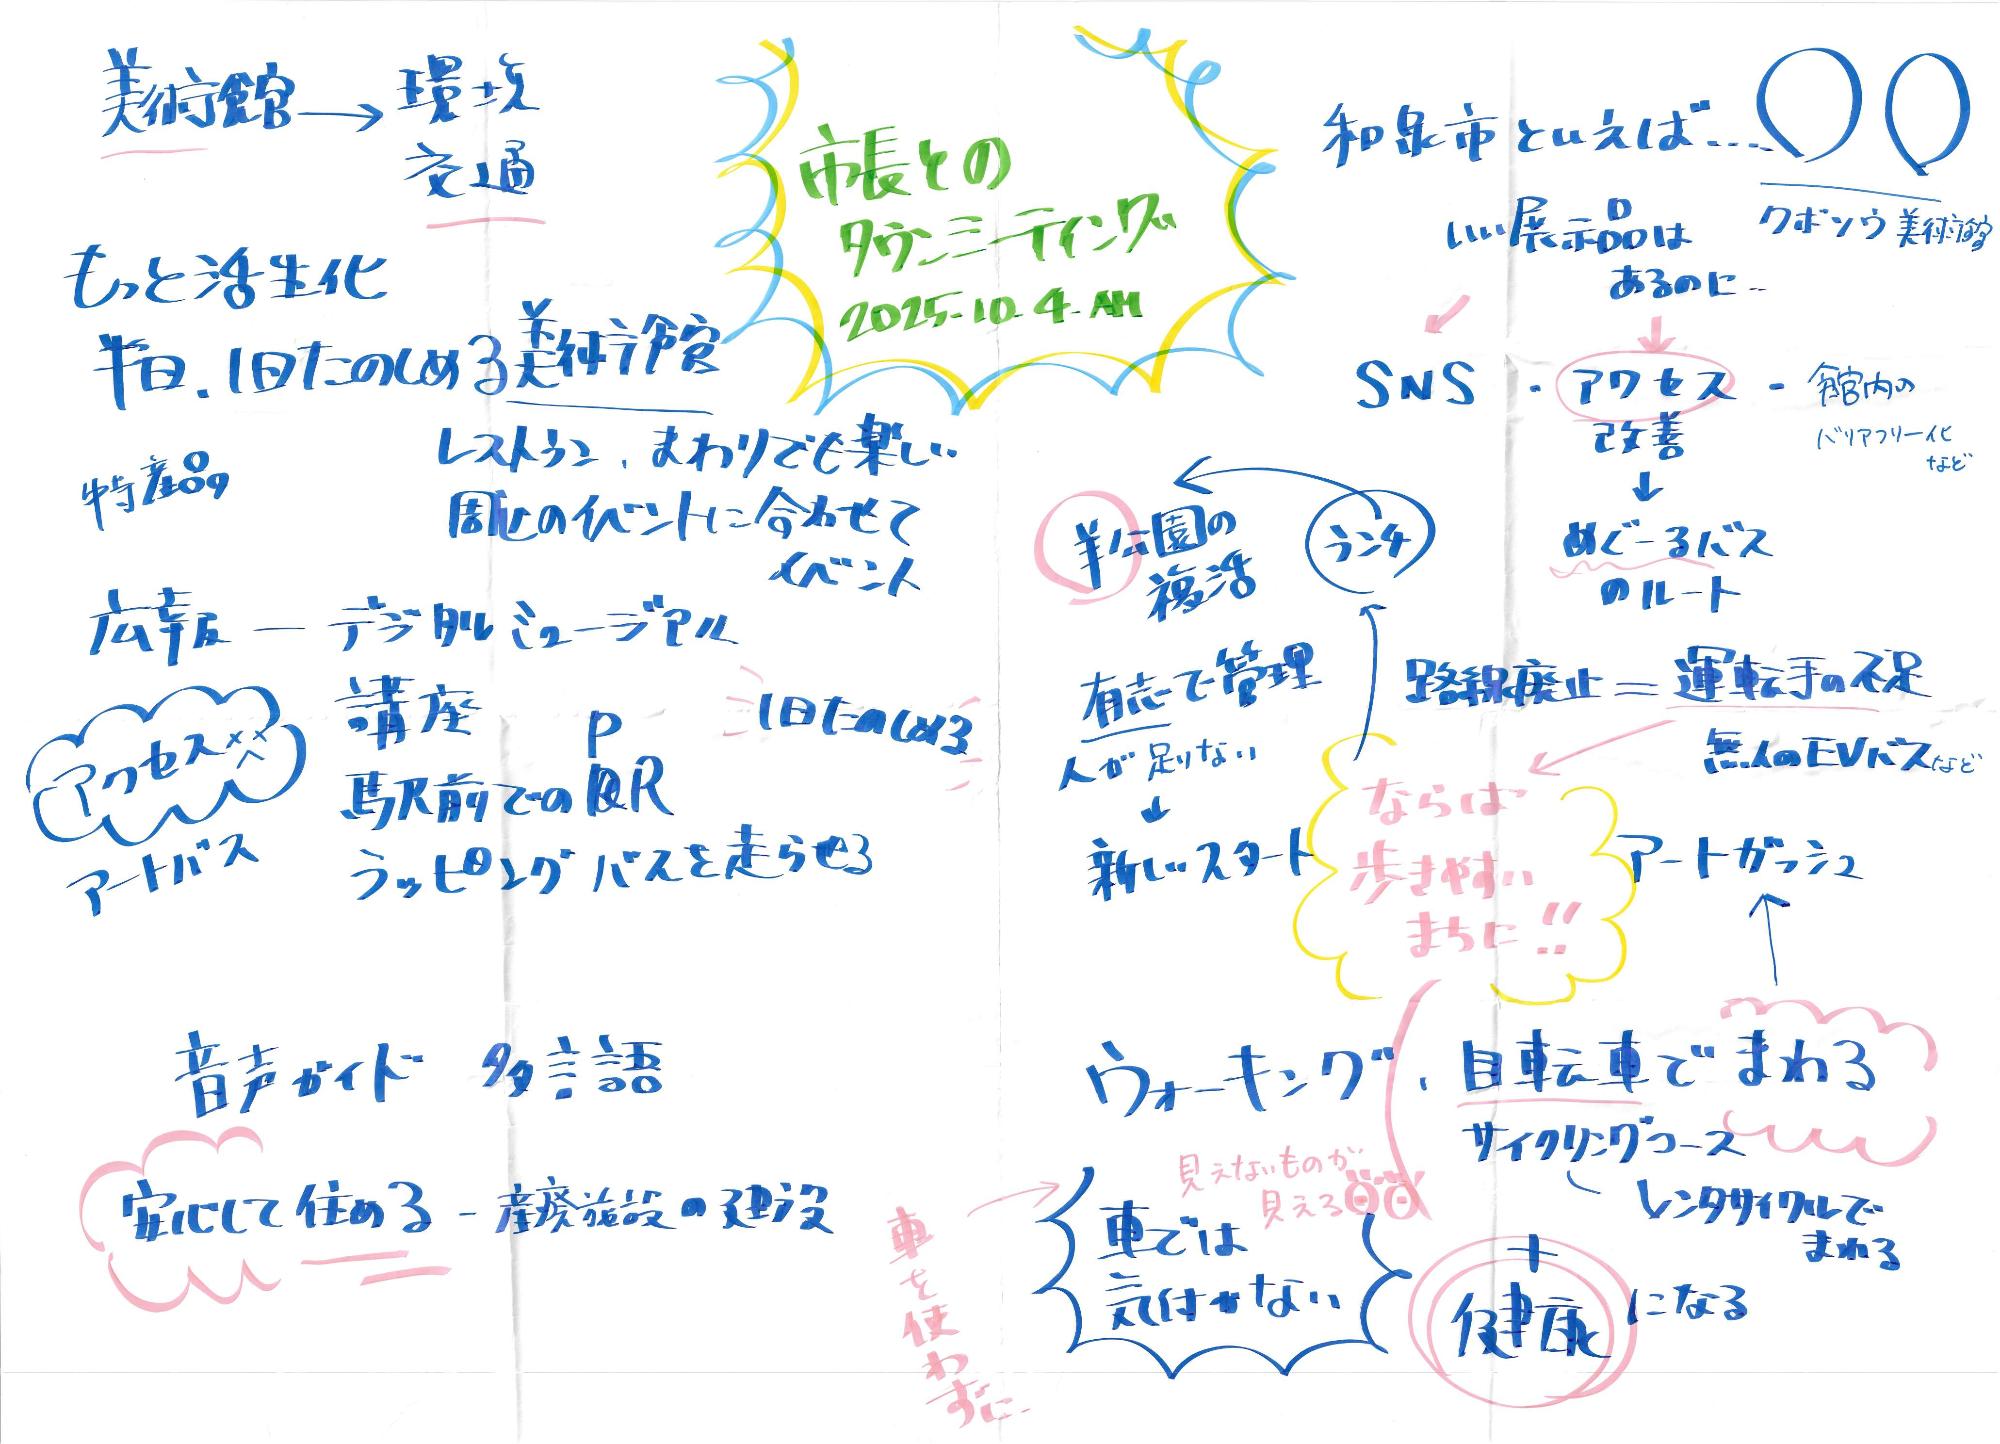 市長との
タウンミーティング
2025.10.4.AM
美術館→環境
交通
もっと活性化
半日、1日たのしめる美術館
特産品
レストラン、まわりでも楽しい
周辺のイベントに合わせて
イベント
広報ーデジタルミュージアム
講座
アクセス××へ
駅前でのPR
1日たのしめる
アートバス
ラッピングバスを走らせる
音声ガイド 多言語
安心して住める - 産廃施設の建設
和泉市といえば…
クボソウ美術館
いい展示品は
あるのに…
SNS・アクセス・館内の
改善
バリアフリー化
など
↓
めぐーるバス
のルート
ランチ
羊公園の
復活
有志で管理
人が足りない
↓
新しいスタート
路線廃止=運転手の不足
無人のEVバスなど
ならば
歩きやすい
まちに!!
アートガッシュ
ウォーキング、自転車でまわる
サイクリングコース
レンタサイクルで
まわる
見えないものが
見える
車では
気付かない
車を使わずに
+
健康になる